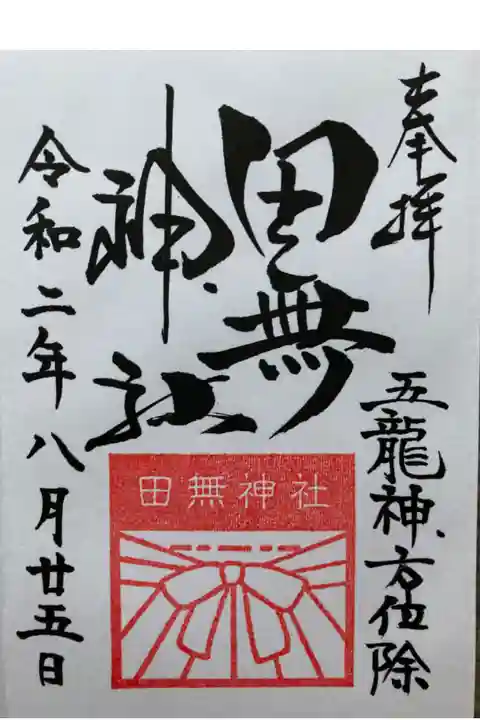 奉拝
五龍神方位除
田無
神社
田無神社
令和二年八月廿五日